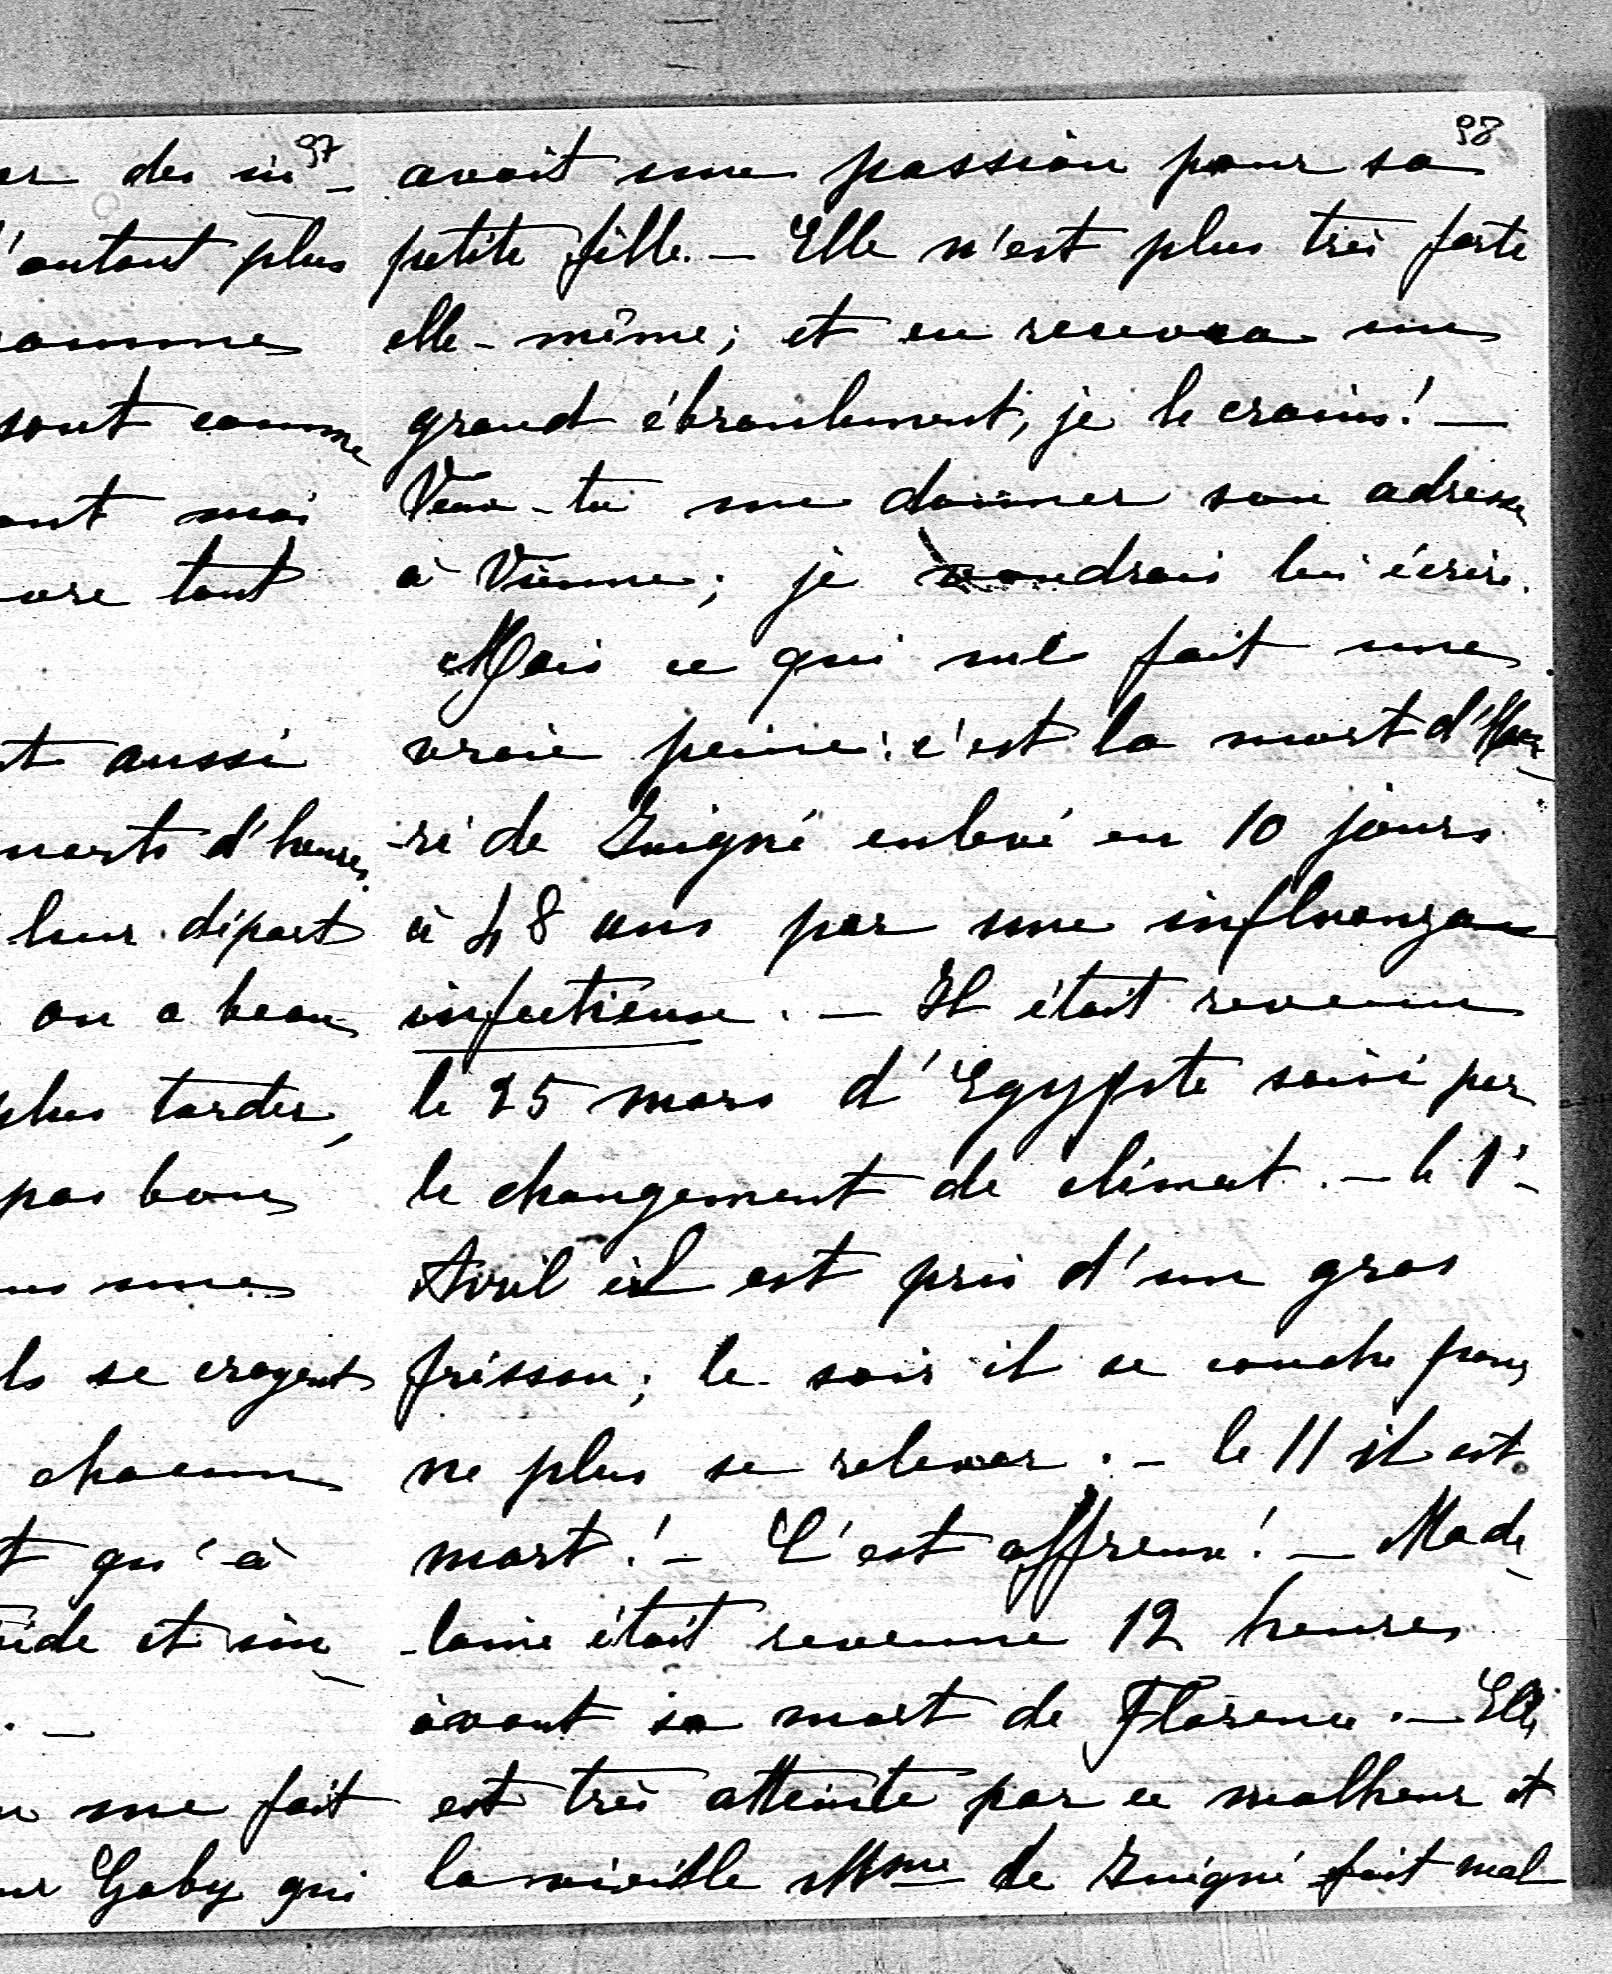 97
er des in-
'autant plus
comme
sont comme
ant moi
vre tout
t aussi
uarts d'heures
leur départ
on a beau
plus tarder,
pas bon
une
ls se croyent
chacun
t qu'à
ide et sin-
. —
me fait
Gaby qui
98
avait une passion pour sa
petite fille. — Elle n'est plus très forte
elle-même; et en recevra un
grand ébranlement, je le crains! —
Veux-tu me donner son adresse
à Vienne; je voudrais lui écrire.
Mais ce qui me fait une
vraie peine: c'est la mort d'Hen-
-ri de Guigné enlevé en 10 jours
à 48 ans par une influenza
infectieuse. — Il était revenu
le 25 mars d'Egypte saisi par
le changement de climat. — le 1r
Avril il est pris d'un gros
frisson; le soir il se couche pour
ne plus se relever. — le 11 il est
mort! — C'est affreux! — Made-
-laine était revenue 12 heures
avant sa mort de Florence. — Elle
est très atteinte par ce malheur et
la vieille Mme de Guigné fait mal